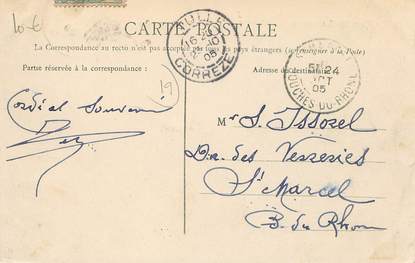 10€
CARTE POSTALE
La Correspondance au recto n'est pas acceptée par tous les pays étrangers (se renseigner à la Poste)
Partie réservée à la correspondance :
Adresse du destinataire
TULLE
CORRÈZE
5E 24
OCT
05
BOUCHES-DU-RHÔNE
19
Cordial Souvenir
Mr S. Issorel
Dr. des Verreries
St Marcel
B. du Rhone